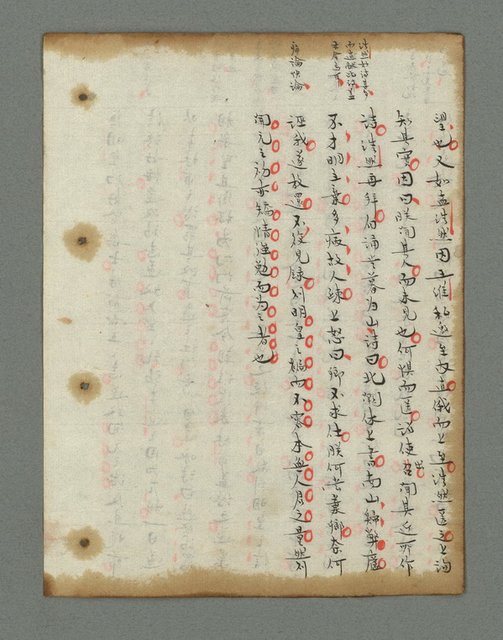 望也又如孟浩然因王維私邀至內直俄而上至浩然匿之上詢
知其實因曰朕聞其人而未見也何懼而匿詔使出召問其近所作
詩浩然再拜自誦歲暮歸山詩曰北闕休上書南山歸弊廬
不才明主棄多病故人疎上怒曰卿不求仕朕何嘗棄卿奈何
誣我遂放還不復見錄則明皇之褊而不容本無人君之量然則
開元之初亦矯情強勉而為之者也